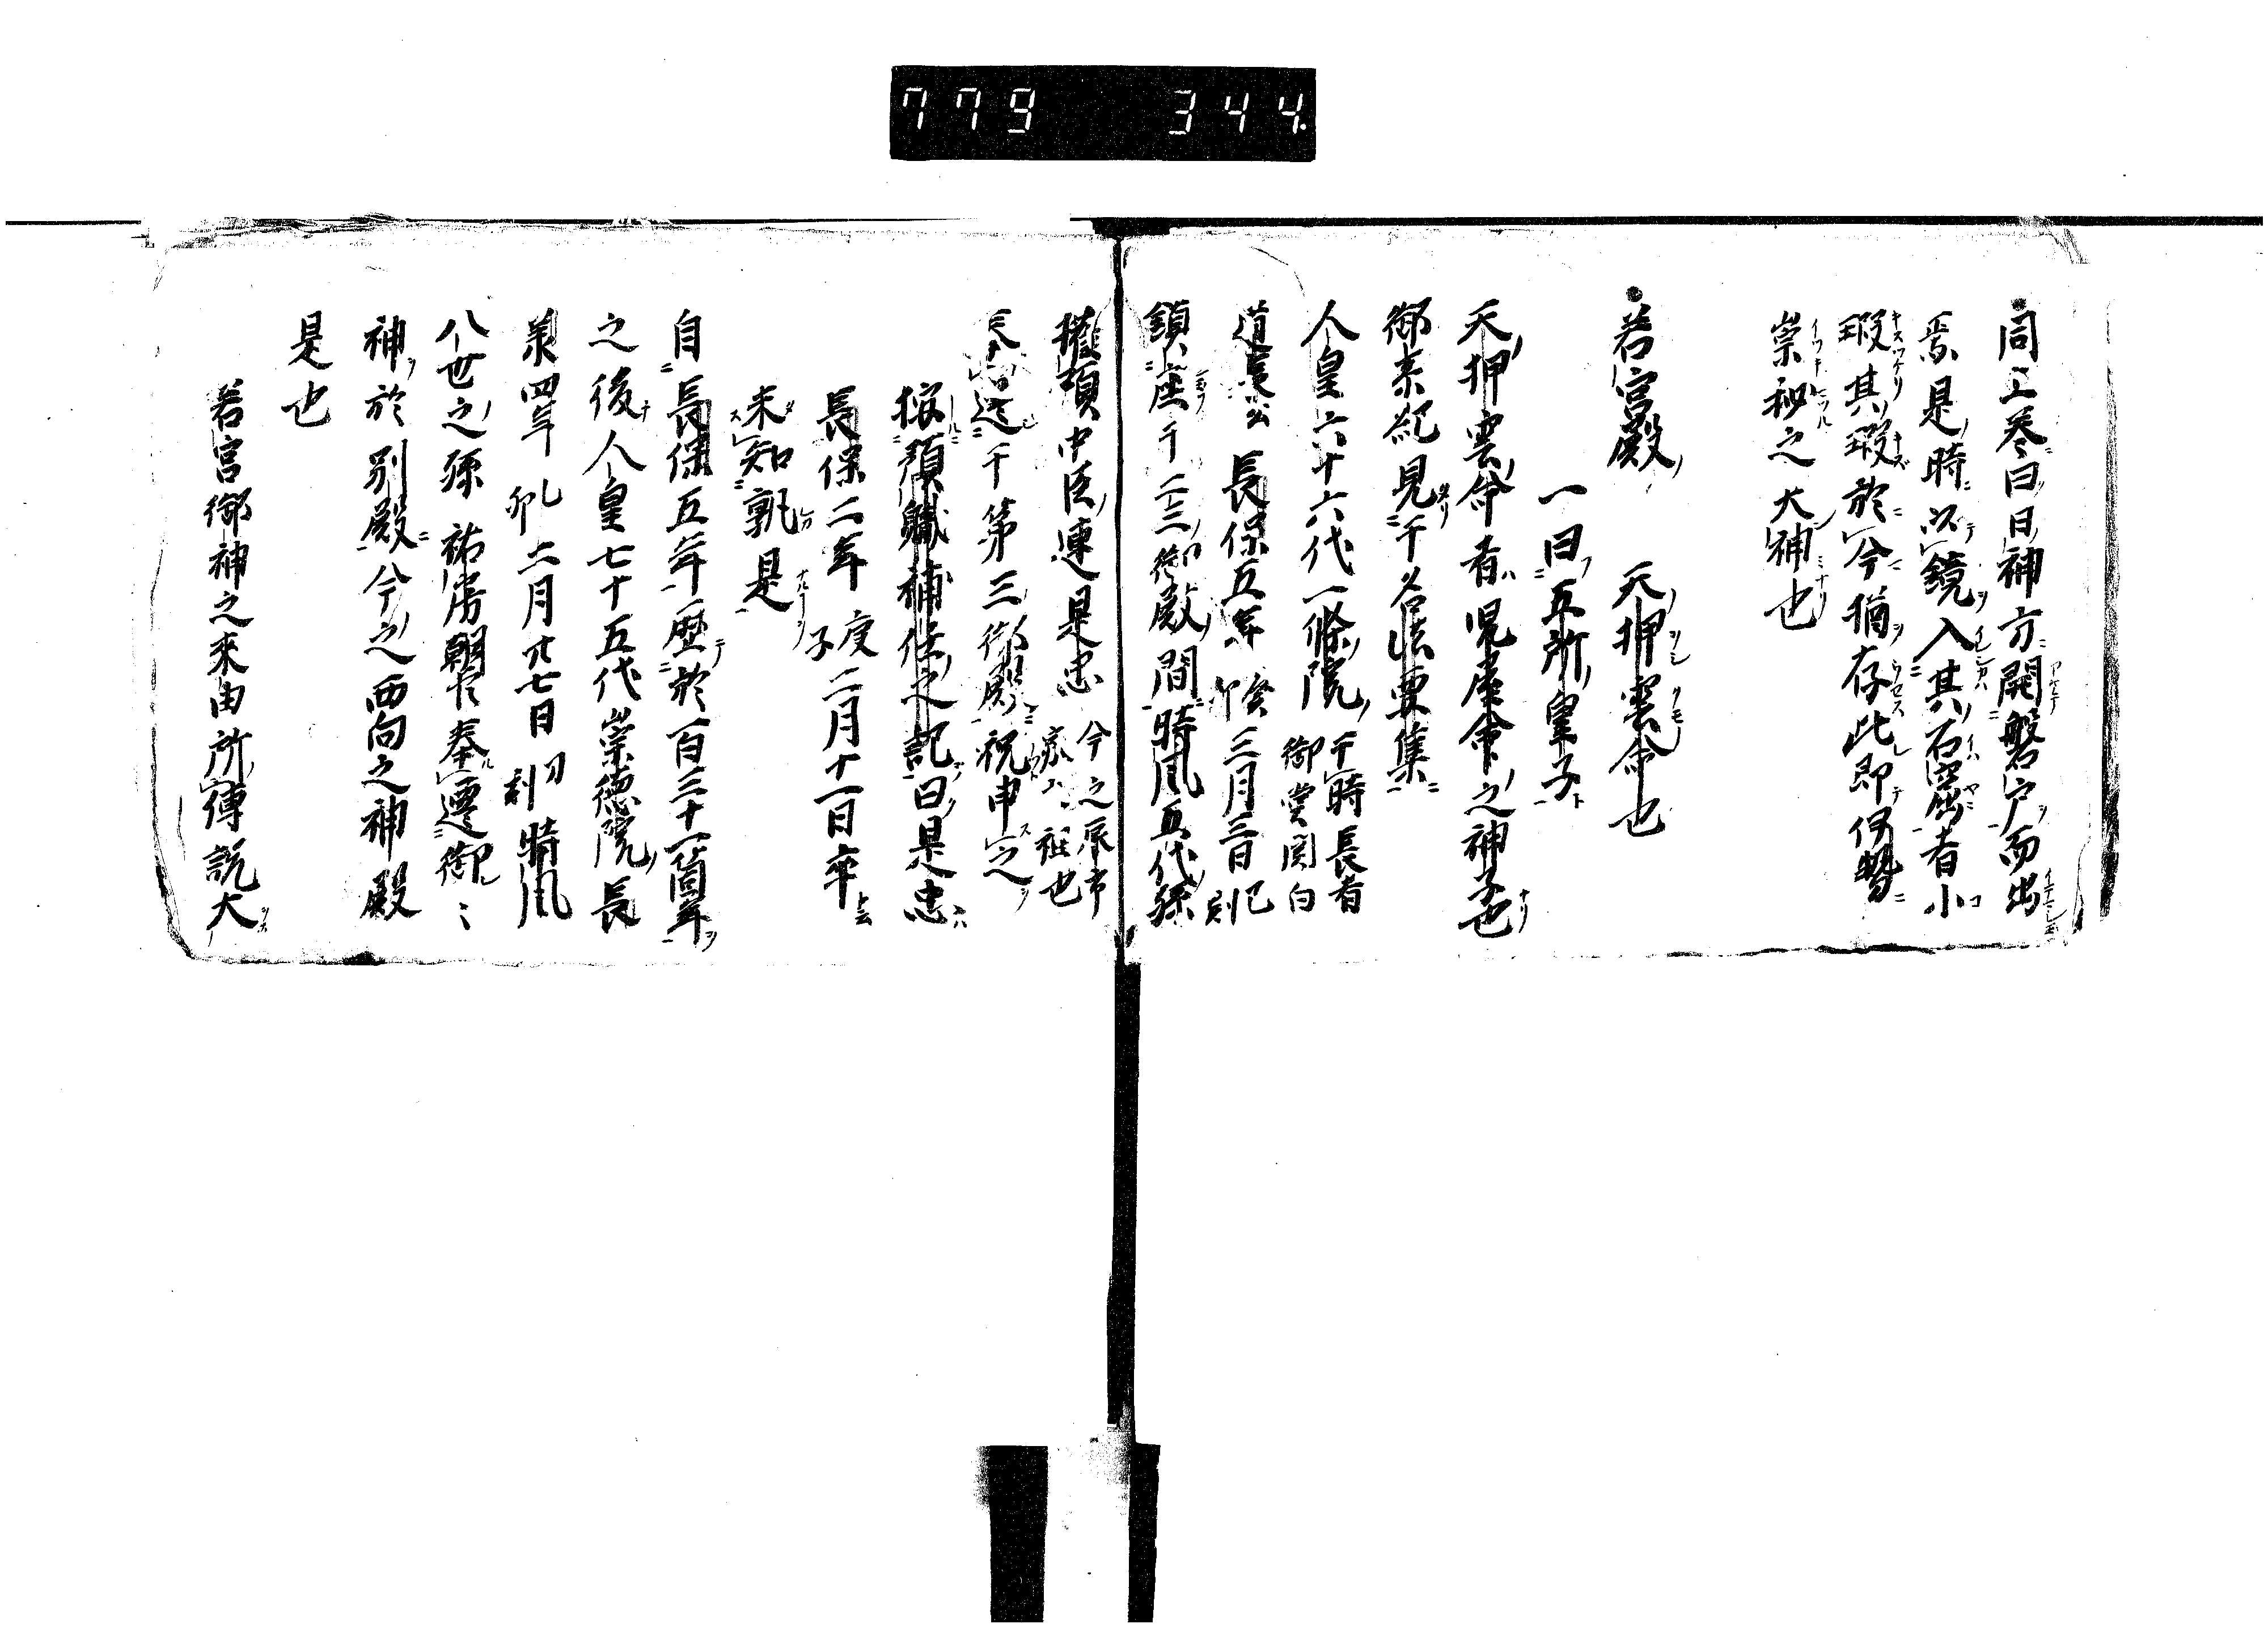 779 344.
同上巻曰日神方開磐戸而出
焉是時以鏡入其石窟者小
瑕其瑕於今猶存此即伊勢
崇秘之大神也
若宮殿 天押雲命也
一曰五所皇子
天押雲命者児屋命之神子也
御系紀見于名法要集
人皇六十六代一條院 于時長者 御堂関白
道長公 長保五年 癸卯 三月三日 巳刻
鎮座于二三御殿間時風五代孫
權預中臣連是忠 今之辰市 家之祖也
奉迁于第三御殿祝申之
按預職補任之記曰是忠
長保二年 庚子 二月十一日卒
未知孰是
自長保五年歴於百三十一箇年
之後人皇七十五代崇徳院長
羕四年 乩卯 二月廿七日 刻 時風
八世之孫祐房朝臣奉遷御〻
神於別殿今之西向之神殿
是也
若宮御神之来由所傳説大